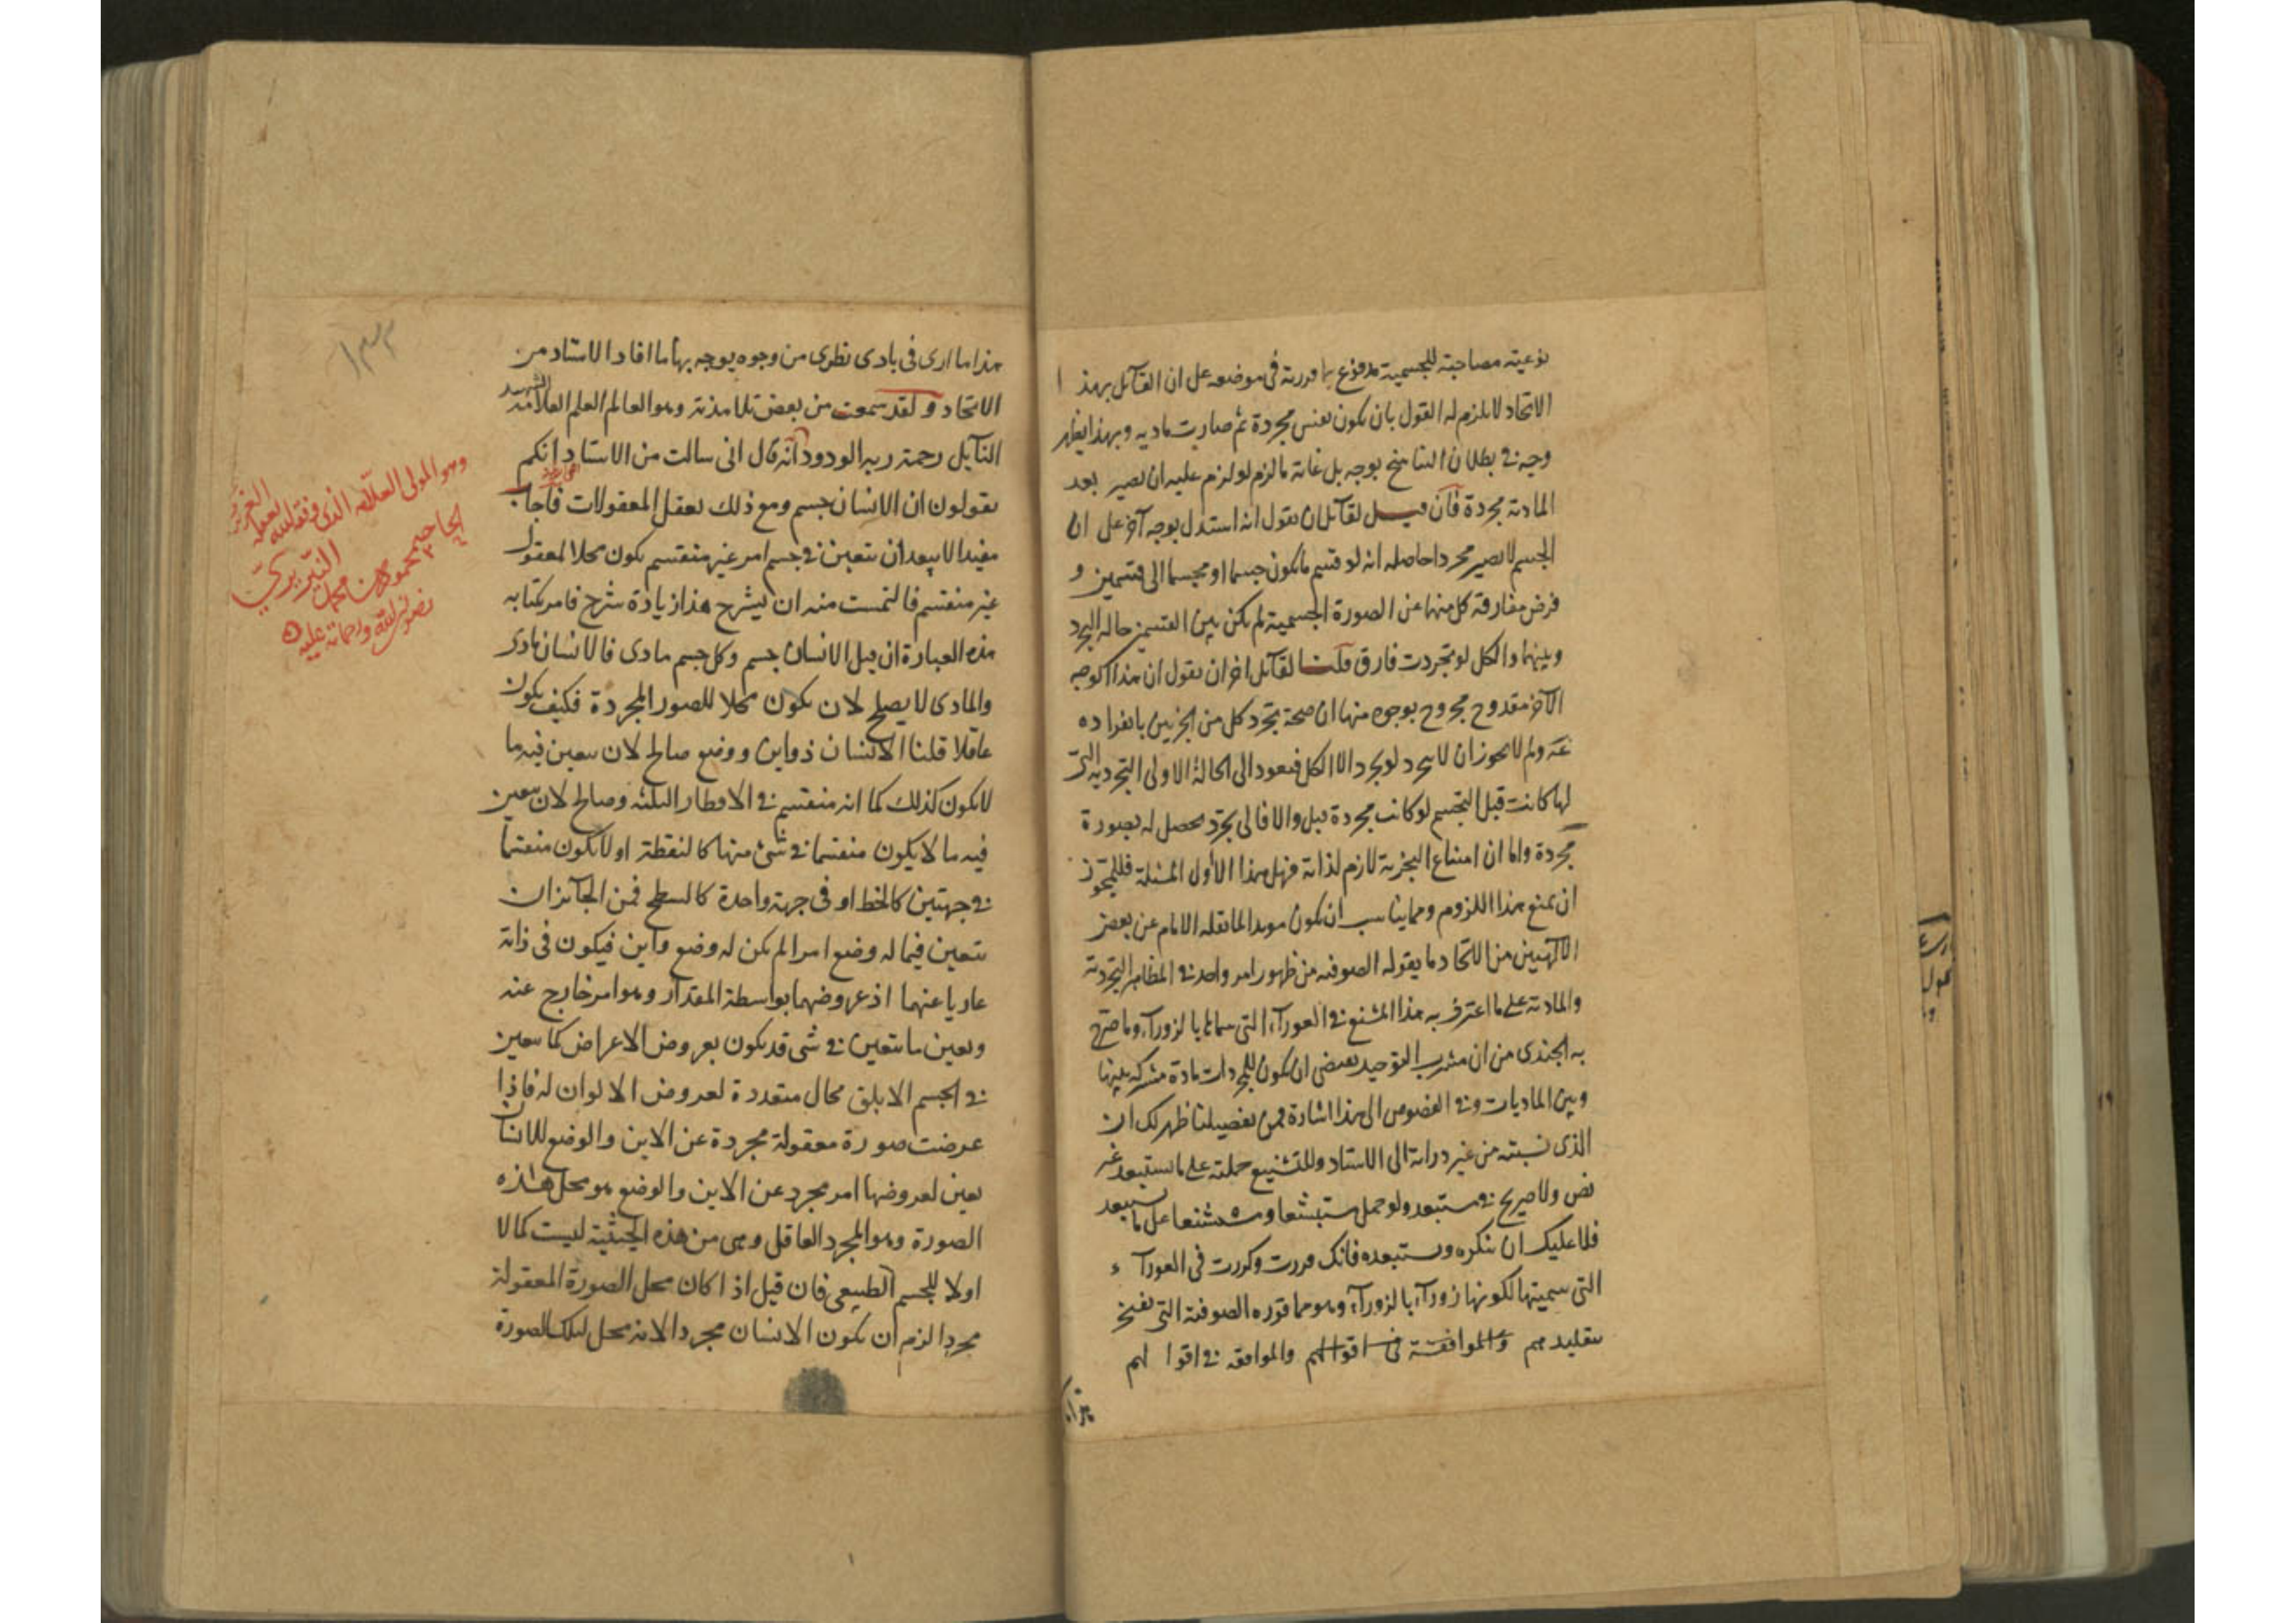 نوعیته مصاحبة للجسمیة مدفوع بما قررته فی موضعه علی ان القائل بهذا
الاتحاد لا یلزم له القول بان یکون نفس مجردة ثم صارت مادیه وبهذا یظهر
وجه فی بطلان التناسخ بوجه بل غایة ما لزم لو لزم علیه ان یصیر بعد
المادیة مجردة فان قیل لقائل ان یقول انه استدل بوجه آخر علی ان
الجسم لا یصیر مجردا حاصله انه لو قسم ما یکون جسما او مجسما الی قسمین و
فرض مفارقة کل منهما عن الصورة الجسمیة لم یکن بین القسمین حالة التجرد
وبینهما والکل لو تجردت فارق قلنا لقائل اخر ان یقول ان هذا الوجه
الآخر مقدوح مجروح بوجوه منها ان صحة تجرد کل من الجزئین بانفراده
ولم لا یجوز ان لا یتجرد لو تجرد الا الکل فیعود الی الحالة الاولی التجردیة التی
لها کانت قبل التجسم لو کانت مجردة قبل والا فالی تجرد یحصل له بصورة
مجردة واما ان امتناع التجزیة لازم لذاته فهل هذا الا اول المسئلة فللمجوز
ان یمنع هذا اللزوم ومما یناسب ان یکون مویدا لما نقله الامام عن بعض
الالهیین من الاتحاد ما یقوله الصوفیه من ظهور امر واحد فی المظاهر التجردیة
والمادیة علی ما اعترف به هذا المشنع فی العوراء التی سماها بالزوراء وما صرح
به الجندی من ان مشرب التوحید یقتضی ان یکون للمجردات مادة مشترکه بینها
وبین المادیات وفی الفصوص الی هذا اشارة فمن تفصیلنا ظهر لک ان
الذی نسبته من غیر درایة الی الاستاد وللتشنیع حملته علی ما یستبعد غیر
نص ولا صریح فی مستبعد ولو حمل مستبشعا ومستشنعا علی ما یستبعد
فلا علیک ان تنکره وتستبعده فانک قررت وکررت فی العوراء
التی سمیتها لکونها زوراء بالزوراء وهو مما قرره الصوفیة التی تفتخر
بتقلیدهم والموافقة فی اقوالهم والموافقه فی اقوالهم
هذا ما اری فی بادی نظری من وجوه یوجه بها ما افاد الاستاد من
الاتحاد ولقد سمعت من بعض تلامذته وهو العالم العلم العلامة الشهید
النآبل رحمة ربه الودود انه قال انی سالت من الاستاد انکم
تقولون ان الانسان جسم ومع ذلک تعقل المعقولات فاجاب
مفیدا لا یبعد ان یتعین فی جسم امر غیر منقسم یکون محلا لمعقول
غیر منقسم فالتمست منه ان یشرح هذا زیادة شرح فامر بکتابه
هذه العبارة ان قیل الانسان جسم وکل جسم مادی فالانسان مادی
والمادی لا یصلح لان یکون محلا للصور المجردة فکیف یکون
عاقلا قلنا الانسان ذو این ووضع صالح لان یتعین فیه ما
لا یکون کذلک کما انه منقسم فی الاقطار الثلثه وصالح لان یتعین
فیه ما لا یکون منقسما فی شیء منها کالنقطة او لا یکون منقسما
فی جهتین کالخط او فی جهة واحدة کالسطح فمن الجآئز ان
یتعین فیما له وضع امر لم یکن له وضع واین فیکون فی ذاته
عاریا عنهما اذ عروضهما بواسطة المقدار وهو امر خارج عنه
وتعین ما یتعین فی شی قد یکون بعروض الاعراض کما یتعین
فی الجسم الابلق محال متعددة لعروض الالوان له فاذا
عرضت صورة معقولة مجردة عن الاین والوضع للانسان
تعین لعروضها امر مجرد عن الاین والوضع هو محل هذه
الصورة وهو المجرد العاقل وهی من هذه الحیثیة لیست کمالا
اولا للجسم الطبیعی فان قیل اذا کان محل الصورة المعقولة
مجردا لزم ان یکون الانسان مجردا لانه محل لتلک الصورة
وهو المولی العلامه الذی وفقه الله
الحاجی محمود بن محمد
النیریزی
رضوان الله ورحماته علیه
۱۳۲